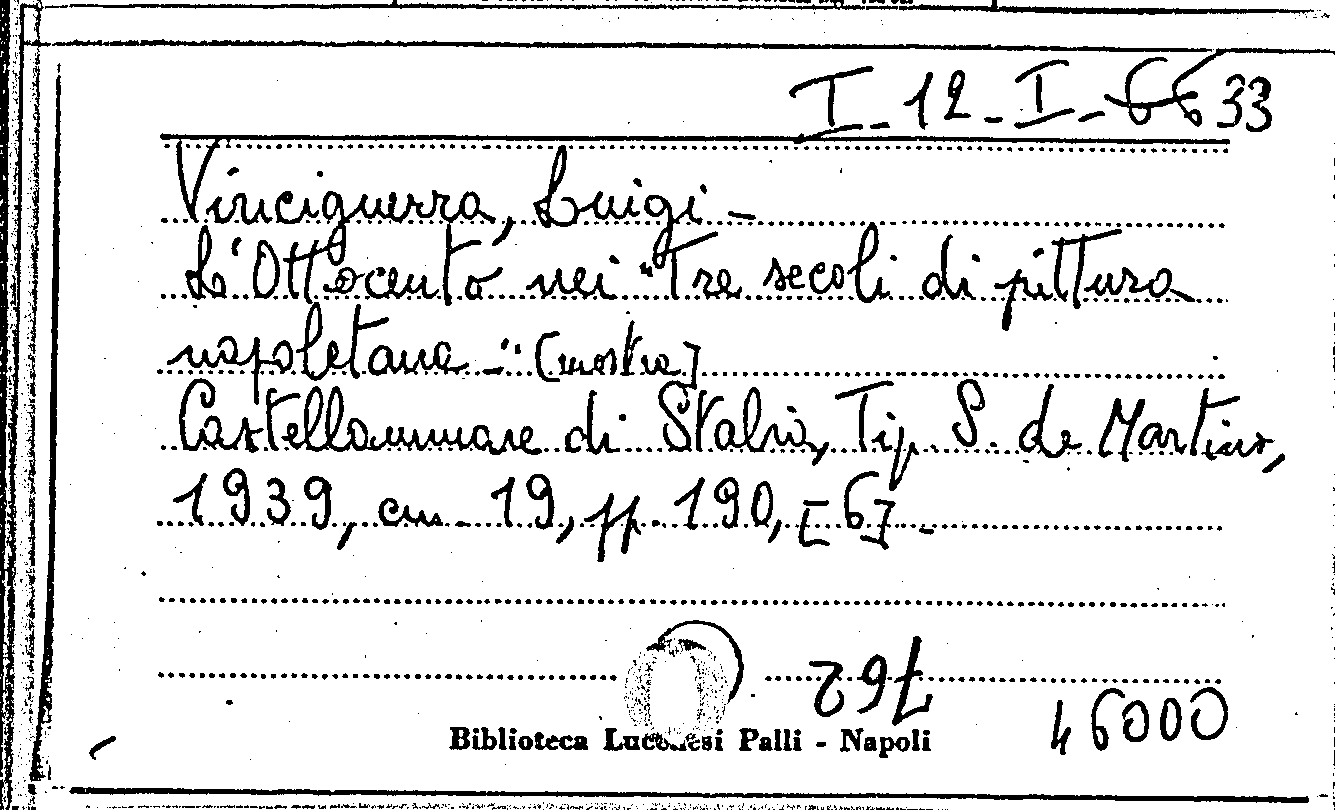 I-12-I-6633
Vinciguerra, Luigi -
L'Ottocento nei "Tre secoli di pittura
napoletana -" [mostra]
Castellammare di Stabia, Tip. S. de Martino,
1939, cm. 19, pp. 190, [6] -
762
46000
Biblioteca Lucchesi Palli - Napoli